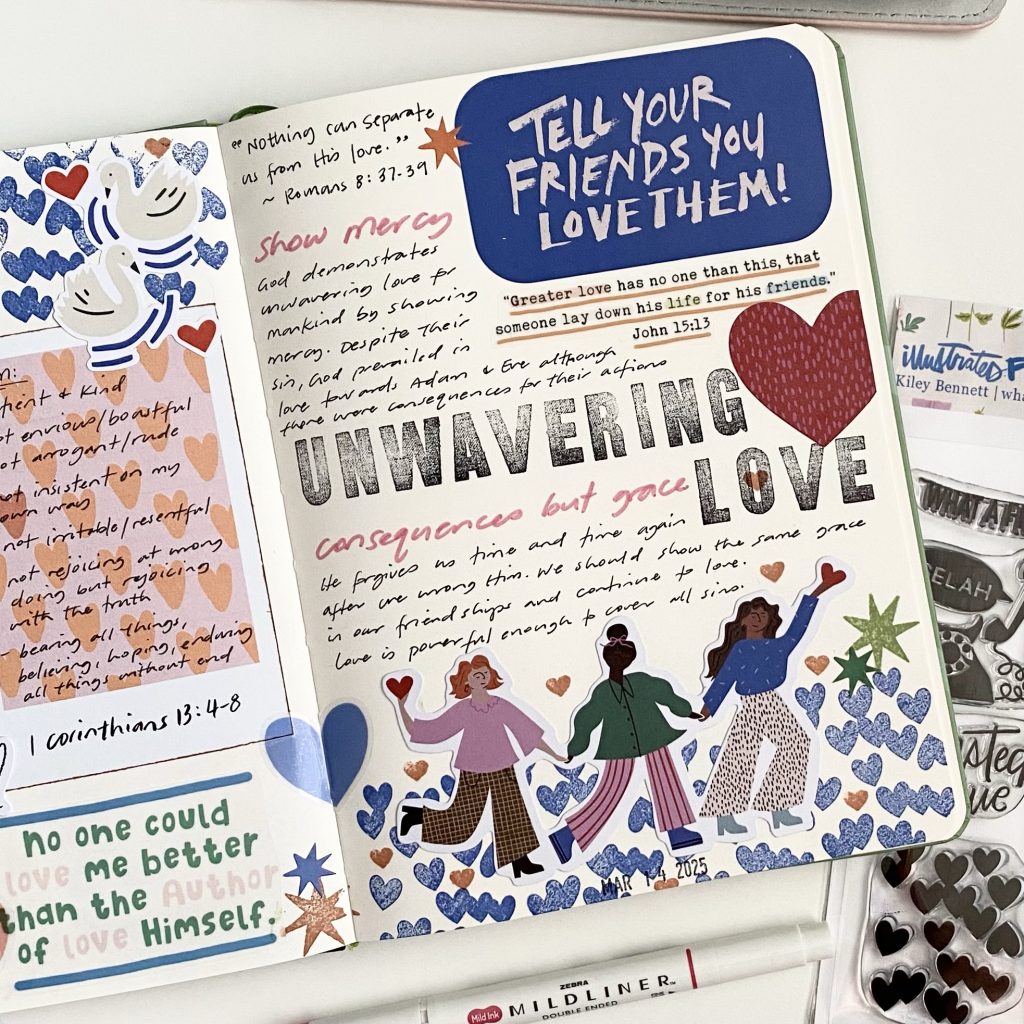 "Nothing can separate
us from His love."
~ Romans 8:37-39
show mercy
God demonstrates
unwavering love for
mankind by showing
mercy. Despite their
sin, God prevailed in
love towards Adam & Eve although
there were consequences for their actions
TELL YOUR
FRIENDS YOU
LOVE THEM!
"Greater love has no one than this, that
someone lay down his life for his friends."
John 15:13
UNWAVERING
LOVE
consequences but grace
He forgives us time and time again
after we wrong Him. We should show the same grace
in our friendships and continue to love.
Love is powerful enough to cover all sins.
MAR 14 2025
& Kind
envious/boastful
arrogant/rude
not insistent on my
own way
not irritable/resentful
not rejoicing at wrong
doing but rejoicing
with the truth
- bearing all things,
believing, hoping, enduring
all things without end
1 corinthians 13:4-8
no one could
love me better
than the Author
of love Himself.
illustrated
Kiley Bennett |
WHAT A
SELAH
ZEBRA
Mild Ink MILDLINER
DOUBLE ENDED